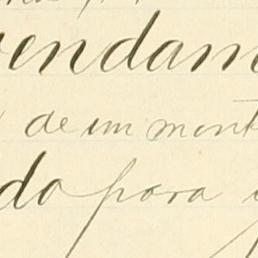 vendam
de un mont
do para